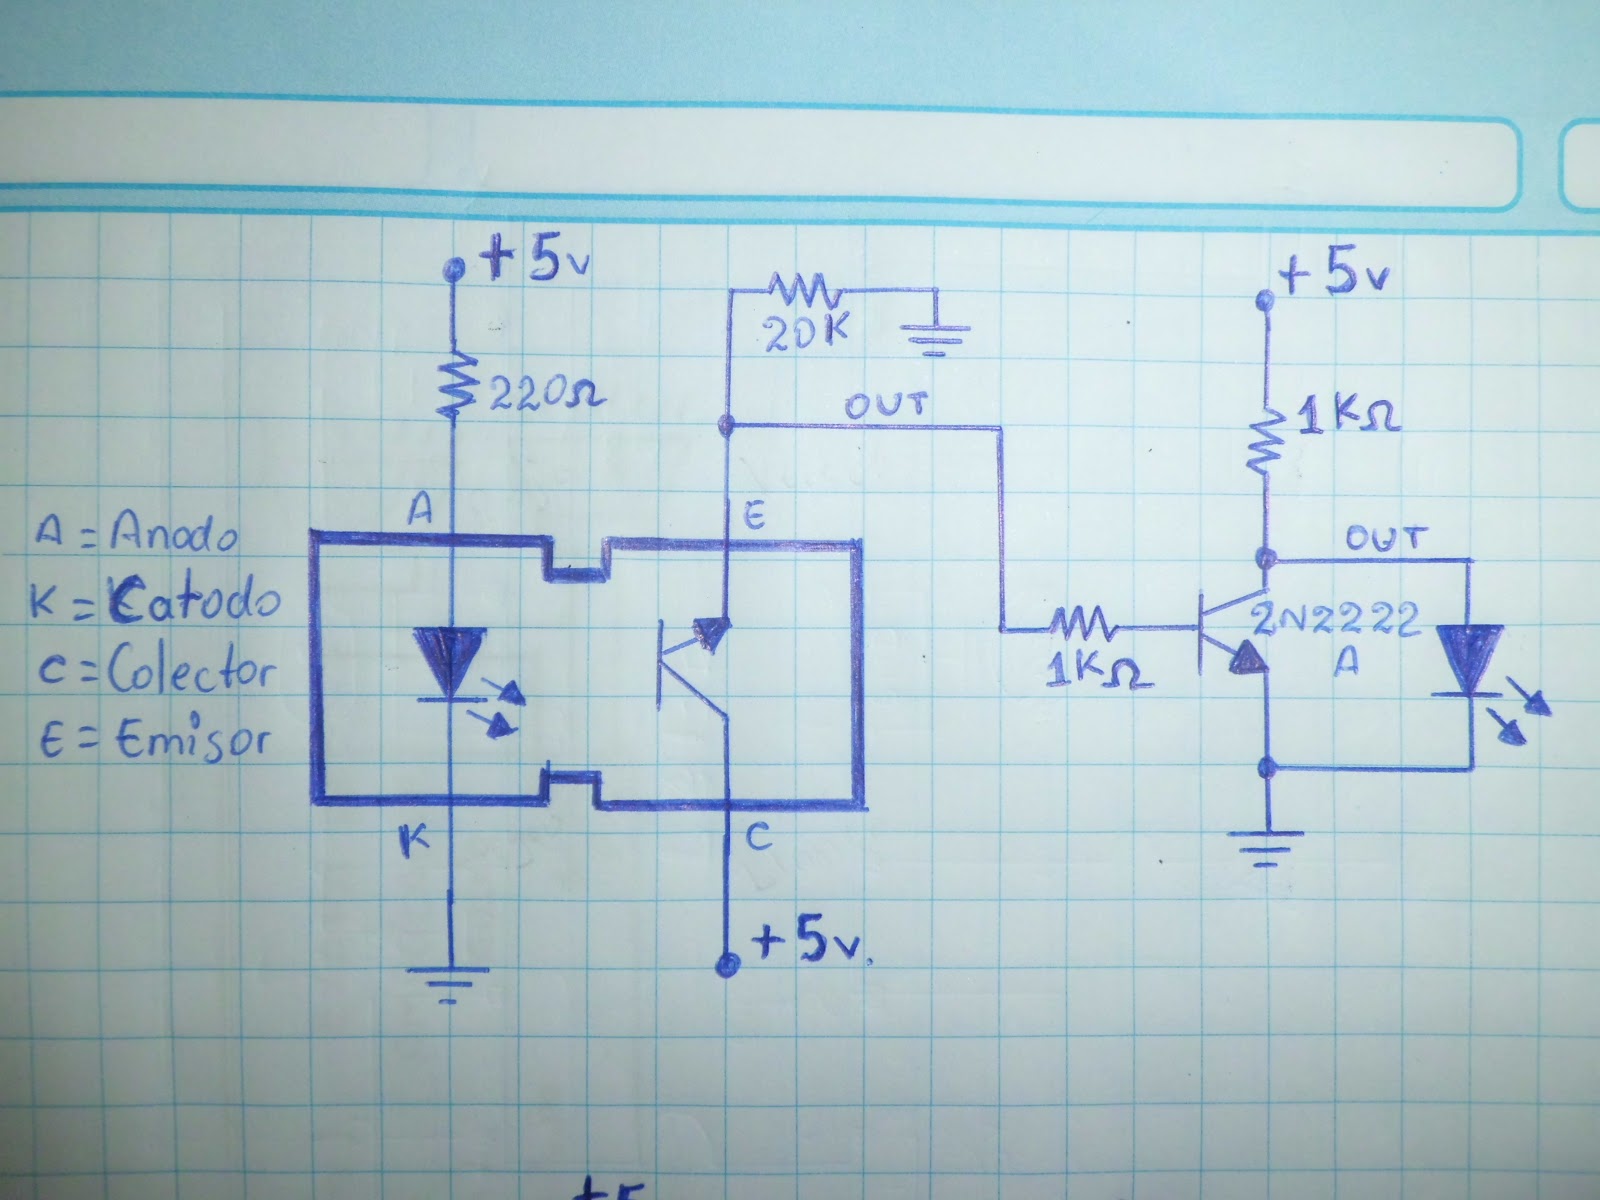 +5v
+5v
20K
220Ω
OUT
1KΩ
A
E
A = Anodo
K = Catodo
C = Colector
E = Emisor
OUT
2N2222
A
1KΩ
K
C
+5v.
+5